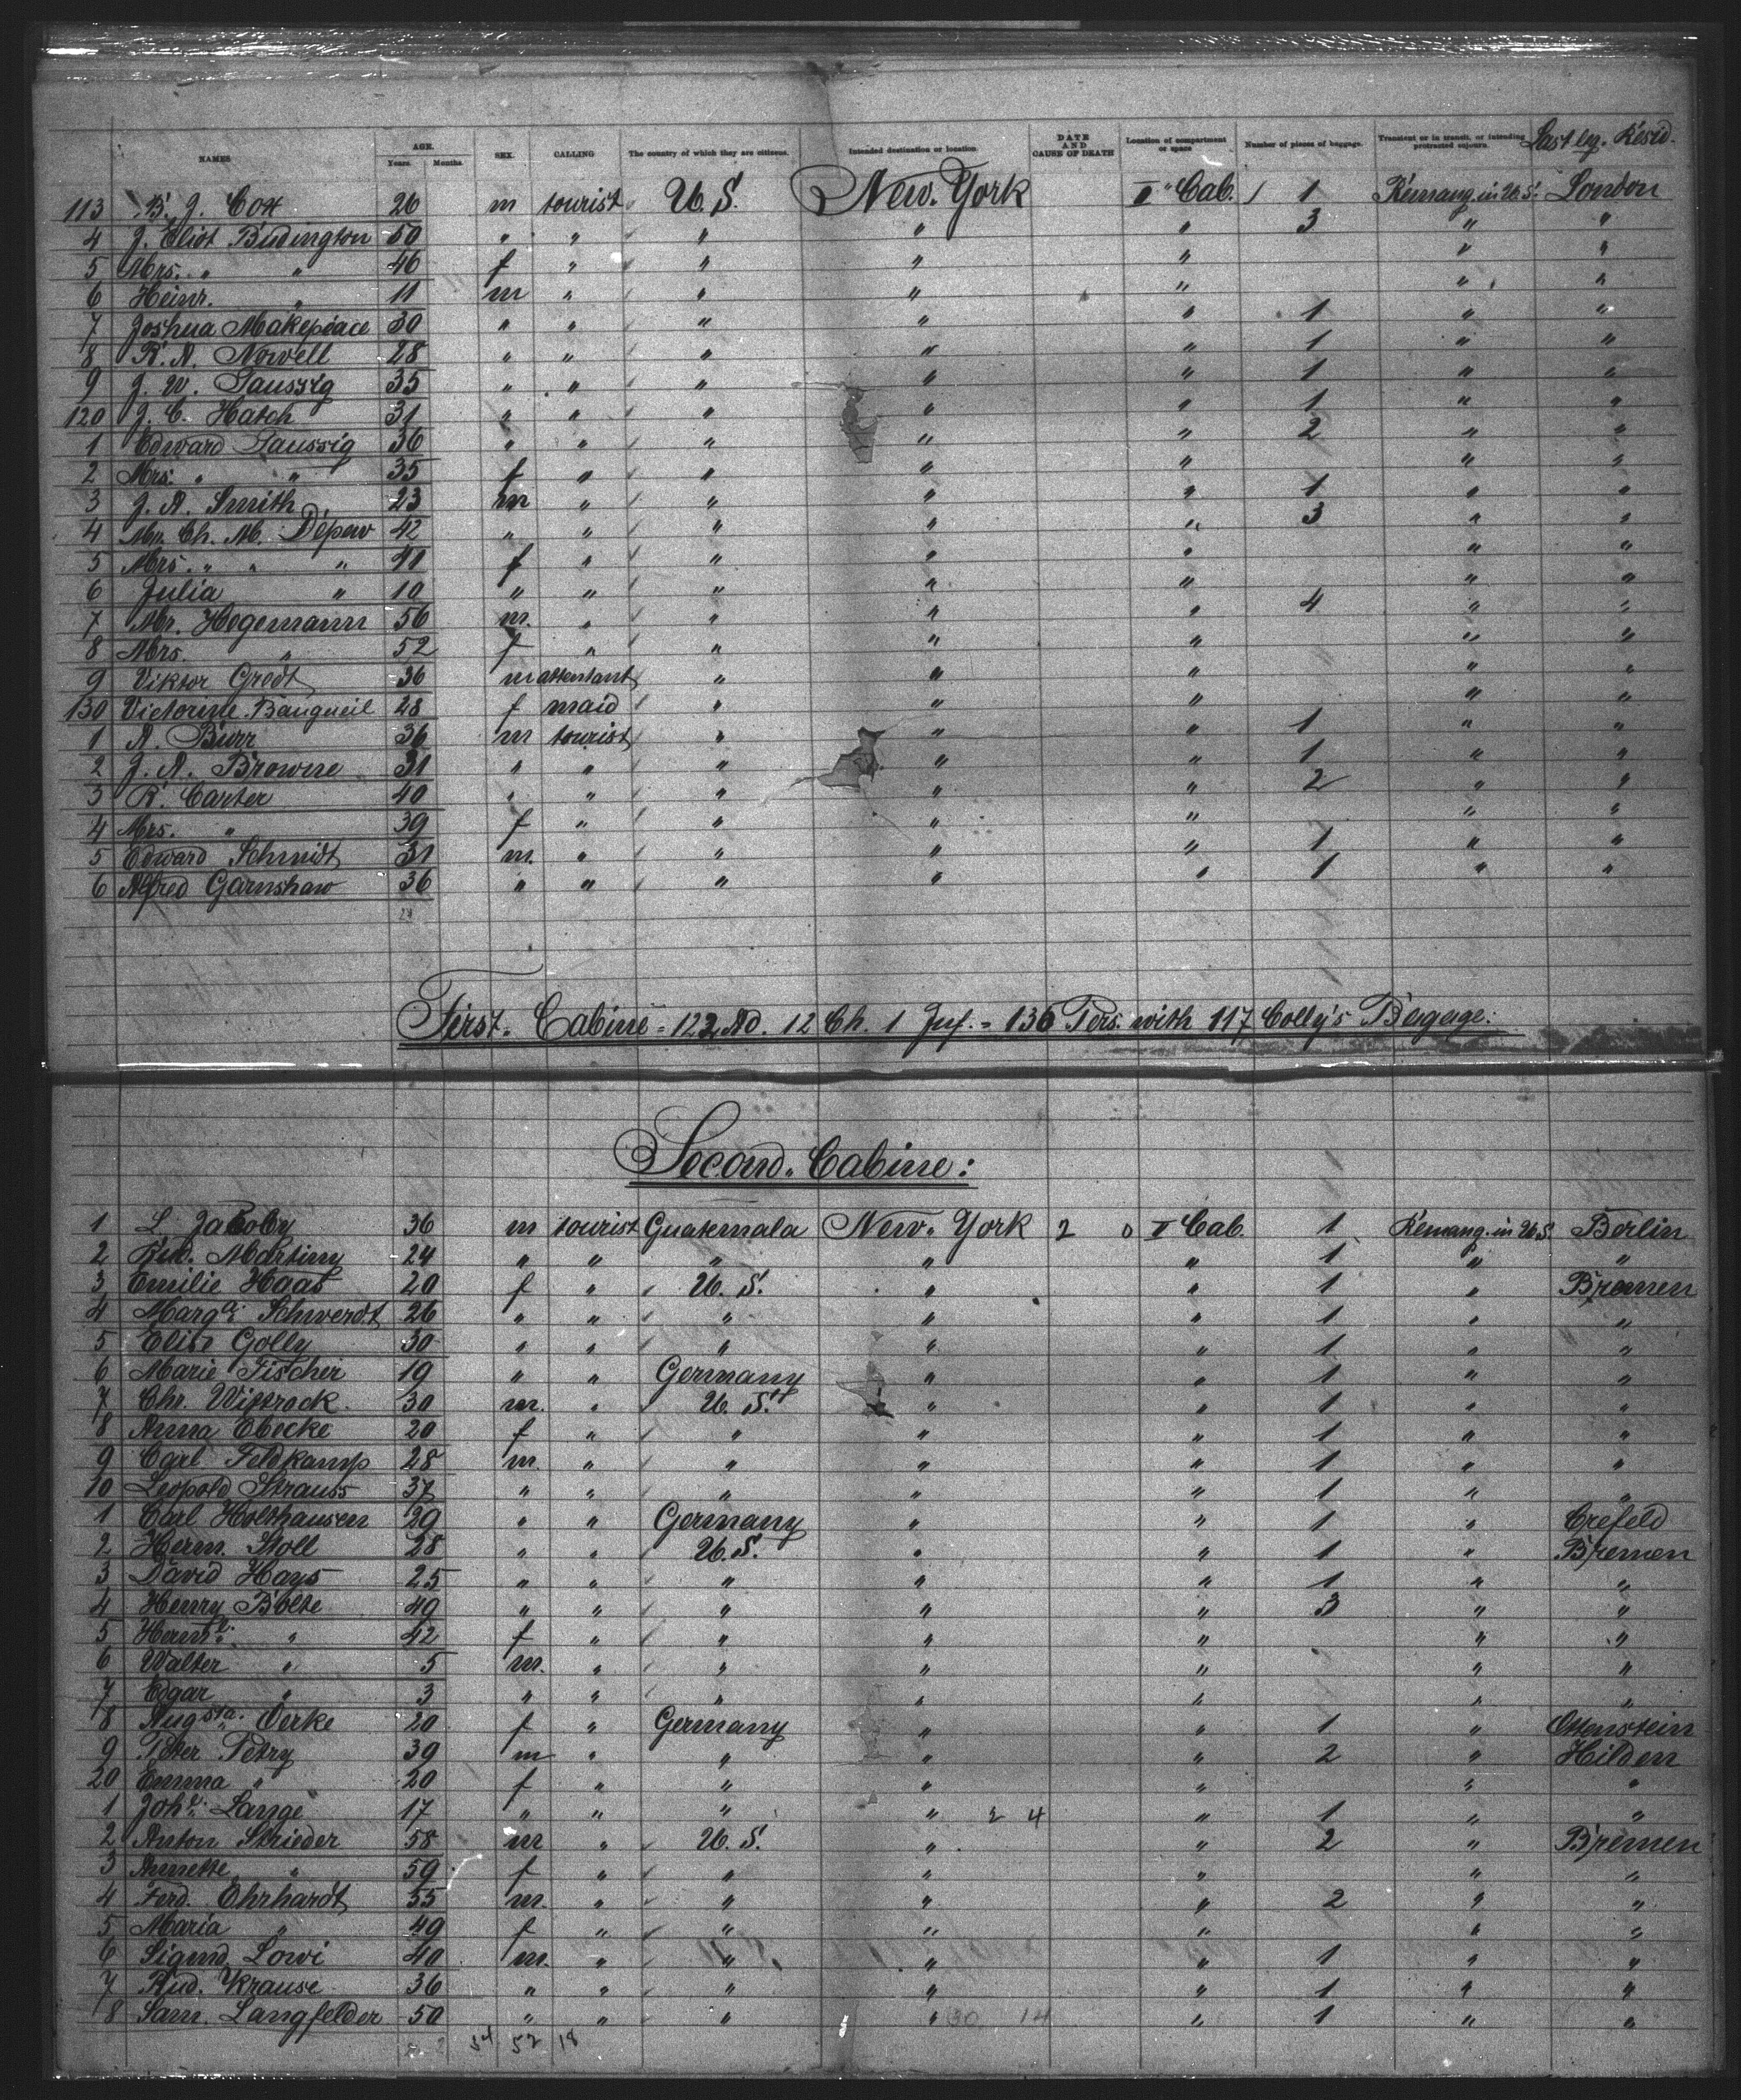 NAMES AGE. Years. Months SEX. CALLING The country of which they are citizens. Intended destination or location DATE AND CAUSE OF DEATH Location of compartment or space Number of pieces of baggage. Transient or in transit, or intending protracted sojourn. Last leg. Resid.
113 B. J. Cox 26 m tourist U. S. New. York II Cab. 1 Remang. in U. S. London
4 J. Eliot Budington 50 " " " " " 3 " "
5 Mrs. " " 46 f " " " " " "
6 Heinr. " 11 m " " " " " "
7 Joshua Makepeace 30 " " " " " 1 " "
8 R. A. Nowell 28 " " " " " 1 " "
9 J. W. Taussig 35 " " " " " 1 " "
120 J. C. Hatch 31 " " " " " 1 " "
1 Edward Taussig 36 " " " " " 2 " "
2 Mrs. " " 35 f " " " " " "
3 J. A. Smith 23 m " " " " 1 " "
4 Mr. Ch. M. Depew 42 " " " " " 3 " "
5 Mrs. " " " 41 f " " " " " "
6 Julia " 10 " " " " " " "
7 Mr. Hegemann 56 m. " " " " 4 " "
8 Mrs. " 52 f " " " " " "
9 Viktor Gredt 36 m attentant " " " " "
130 Victorine Baugueil 28 f maid " " " " "
1 A. Burr 36 m tourist " " " 1 " "
2 J. A. Browne 31 " " " " " 1 " "
3 R. Carter 40 " " " " " 2 " "
4 Mrs. " 39 f " " " " " "
5 Edward Schmidt 31 m. " " " " 1 " "
6 Alfred Garnshaw 36 " " " " " 1 " "
First. Cabine = 122 Ad. 12 Ch. 1 Juf. = 136 Pers. with 117 Colly's Bagage:
Second. Cabine:
1 L. Jacoby 36 m tourist Guatemala New. York 2 0 II Cab. 1 Remang. in U. S. Berlin
2 Rud. Martiny 24 " " " " " 1 " "
3 Emilie Haas 20 f " U. S. " " 1 " Bremen
4 Marga. Schwerdt 26 " " " " " 1 " "
5 Elise Golly 30 " " " " " 1 " "
6 Marie Fischer 19 " " Germany " " 1 " "
7 Chr. Wittrock 30 m. " U. S. " " 1 " "
8 Anna Ebecke 20 f " " " " 1 " "
9 Carl Feldkamp 28 m. " " " " 1 " "
10 Leopold Strauss 37 " " " " " 1 " "
1 Carl Holthausen 29 " " Germany " " 1 " Crefeld
2 Herm. Stoll 28 " " U. S. " " 1 " Bremen
3 David Hays 25 " " " " " 1 " "
4 Henry Bolte 49 " " " " " 3 " "
5 Herme. " 42 f " " " " " "
6 Walter " 5 m. " " " " " "
7 Edgar " 3 " " " " " " "
8 Augsta. Oerke 20 f " Germany " " 1 " Ottenstein
9 Peter Petry 39 m " " " " 2 " Hilden
20 Emma " 20 f " " " " " "
1 Johe. Lange 17 " " " " 2 4 " 1 " "
2 Anton Strieder 58 m " U. S. " " 2 " Bremen
3 Annette " 59 f " " " " " "
4 Ferd. Ehrhardt 55 m. " " " " 2 " "
5 Maria " 49 f " " " " " "
6 Sigmd. Lowi 40 m. " " " " 1 " "
7 Rud. Krause 36 " " " " " 1 " "
8 Sam. Langfelder 50 " " " " 30 14 " 1 " "
54 52 18